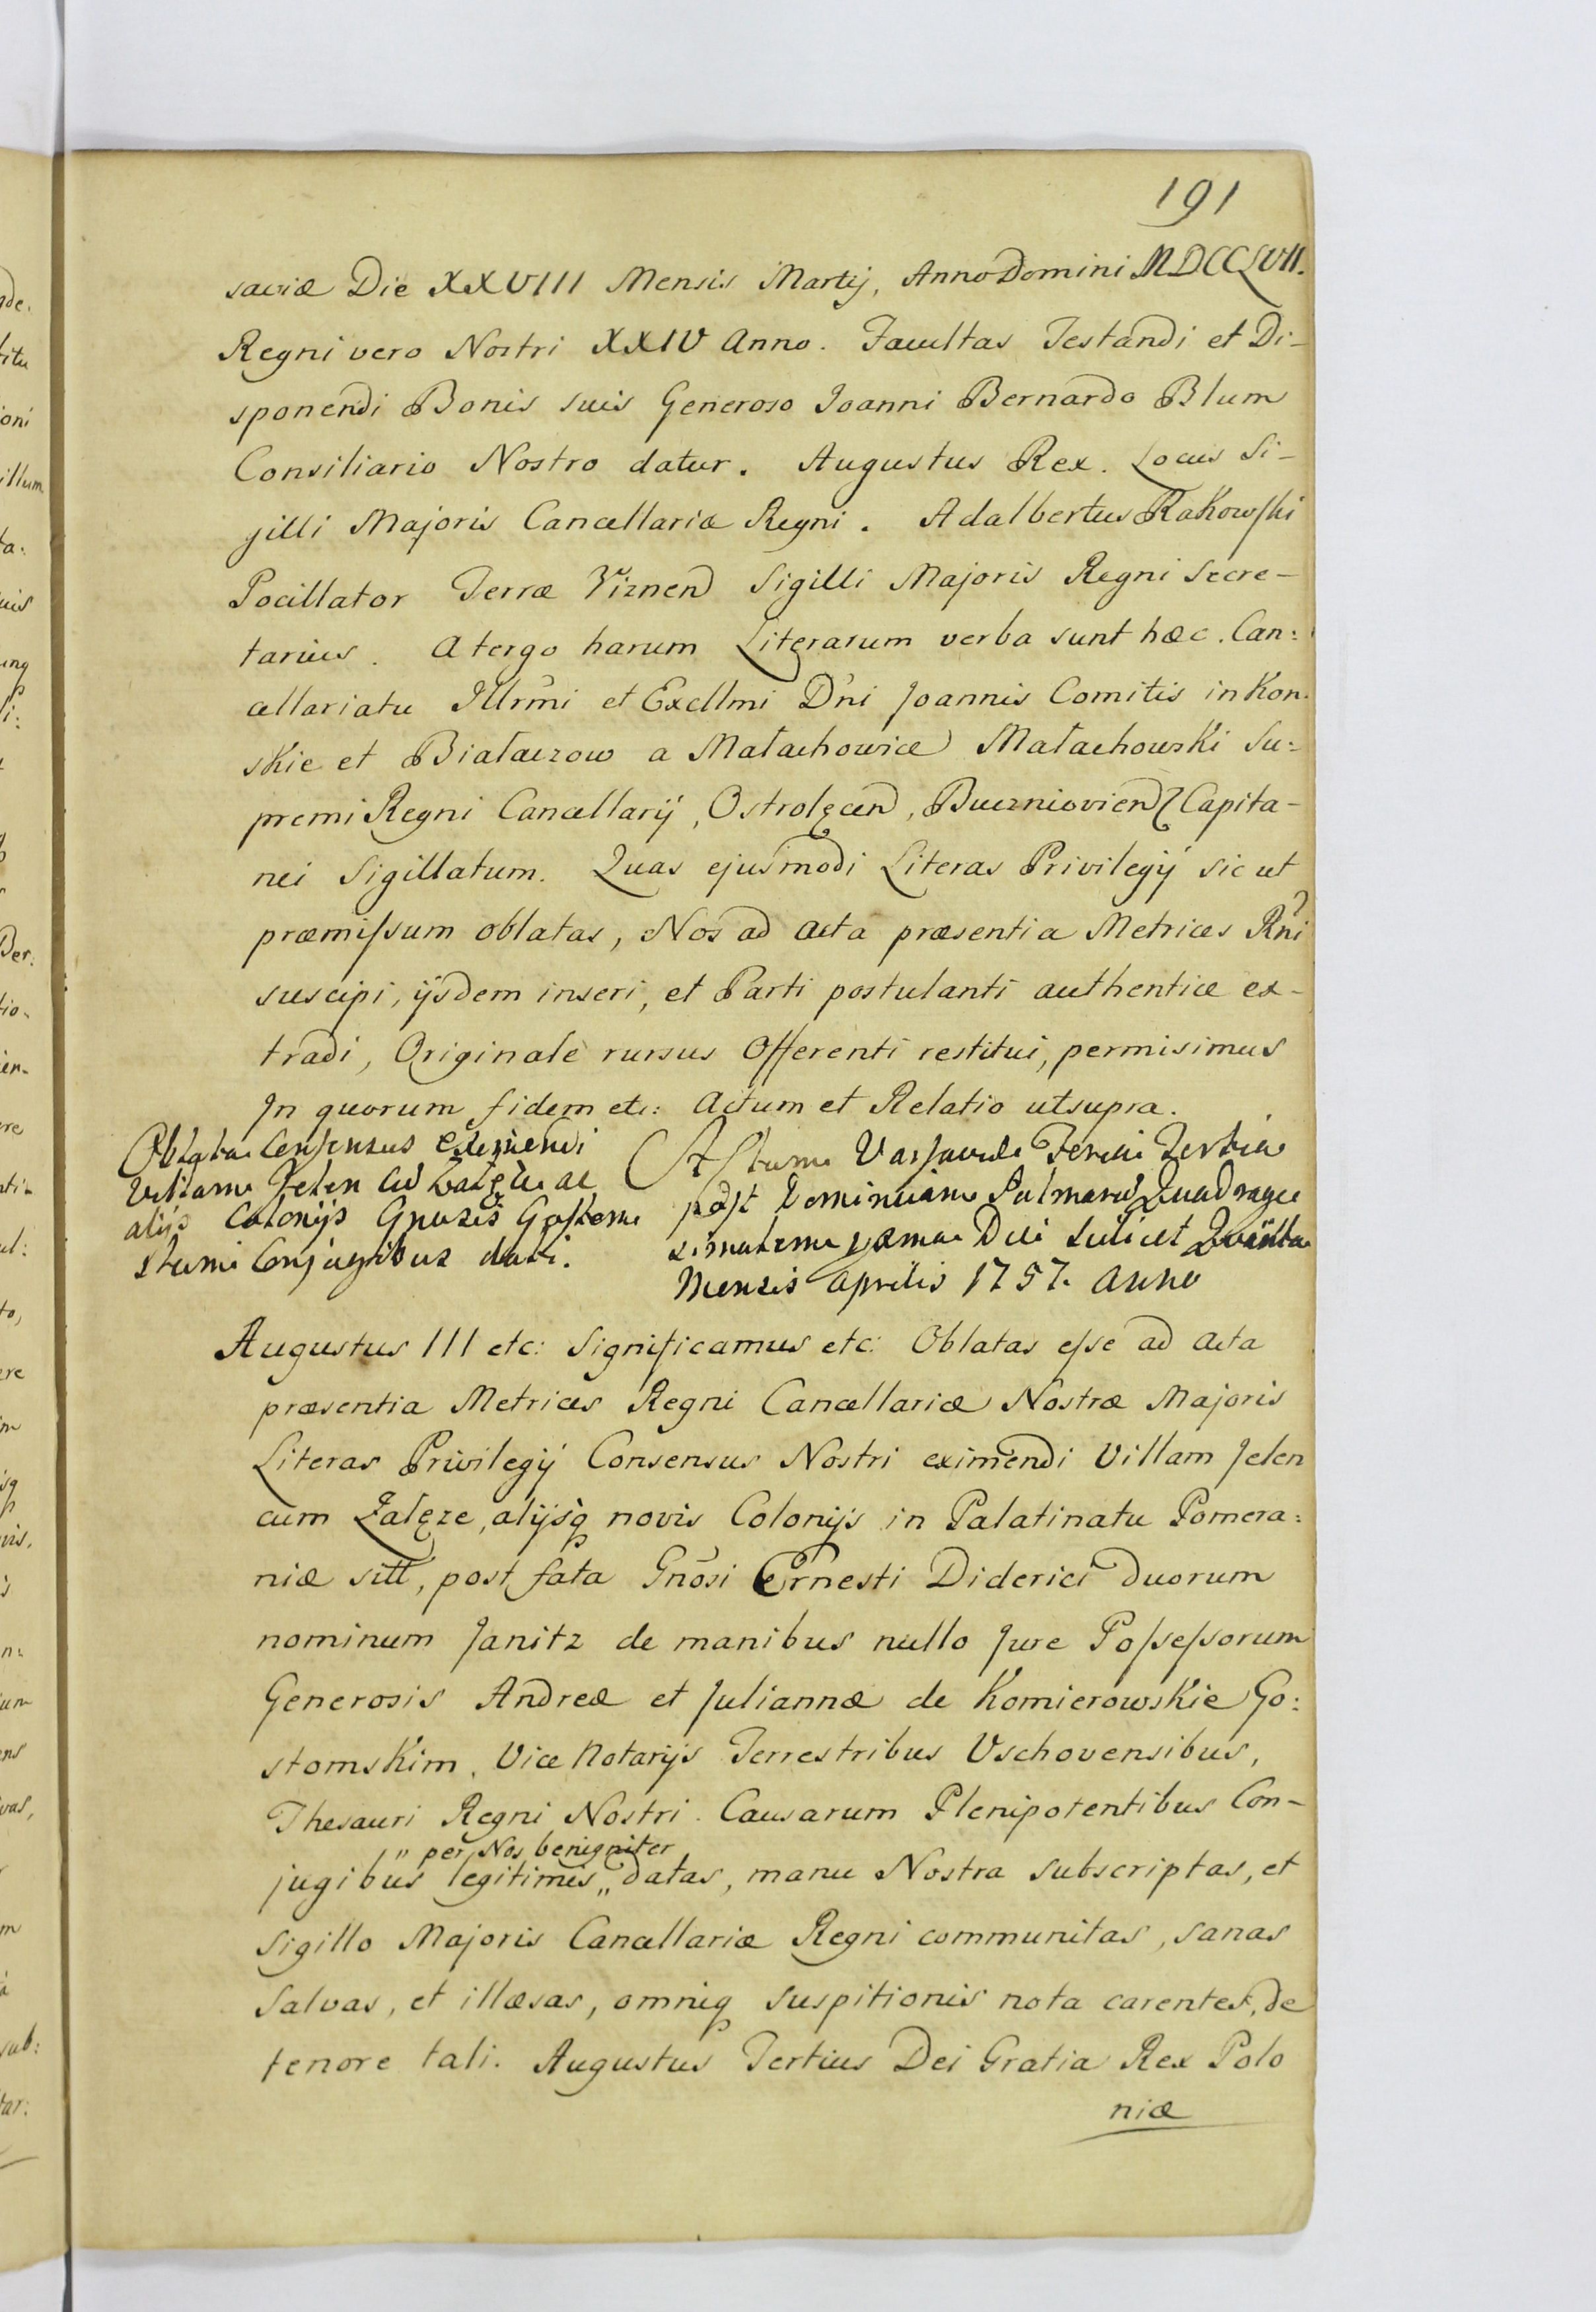 191
saviæ Die XXVIII Mensis Martij, Anno Domini MDCCLVII.
Regni vero Nostri XXIV Anno. Facultas Testandi et Di-
sponendi Bonis suis Generoso Joanni Bernardo Blum
Consiliario Nostro datur. Augustus Rex. Locus Si-
gilli Majoris Cancellariæ Regni. Adalbertus Rakowski
Pocillator Terræ Viznen Sigilli Majoris Regni Secre-
tarius. A tergo harum Literarum verba sunt hæc. Can:
cellariatu Illrmi et Excllmi Dni Joannis Comitis in Kon-
skie et Białaczow a Małachowice Małachowski Su:
premi Regni Cancellarij, Ostrolęcen, Buczniovien Capita-
nei Sigillatum. Quas ejusmodi Literas Privilegij sic ut
præmissum oblatas, Nos ad Acta præsentia Metrices Rni
suscipi, ijsdem inseri, et Parti postulanti authentice ex-
tradi, Originale rursus Offerenti restitui, permisimus
In quorum fidem etc: Actum et Relatio ut supra.
Oblata Consensus eximendi
Villam Jelen cum Załęze ac
alijs Colonijs Gnosis Gostom
skim Conjugibus dati.
Actum Varsaviæ Feria Tertia
post Dominicam Palmarum Quadrage
simalem proxima Die scilicet Quinta
Mensis Aprilis 1757. Anno
Augustus III etc: Significamus etc: Oblatas esse ad Acta
præsentia Metrices Regni Cancellariæ Nostræ Majoris
Literas Privilegij Consensus Nostri eximendi Villam Jelen
cum Załęze, alijsq novis Colonijs in Palatinatu Pomera:
niæ sitt, post fata Gnosi Ernesti Diderici duorum
nominum Janitz de manibus nullo Jure Possessorum
Generosis Andreæ et Juliannæ de Komierowskie Go:
stomskim, Vice Notarijs Terrestribus Vschovensibus,
Thesauri Regni Nostri Causarum Plenipotentibus Con-
" per Nos benigniter
jugibus legitimis,, datas, manu Nostra subscriptas, et
Sigillo Majoris Cancellariæ Regni communitas, sanas
Salvas, et illæsas, omniq suspitionis nota carentes, de
tenore tali. Augustus Tertius Dei Gratia Rex Polo
niæ